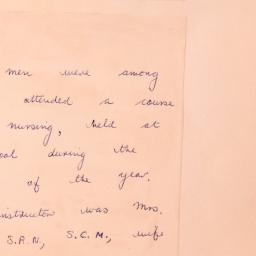 men were among
attended a course
nursing, held at
ool during the
of the year.
instructor was Mrs.
S.R.N., S.C.M., wife